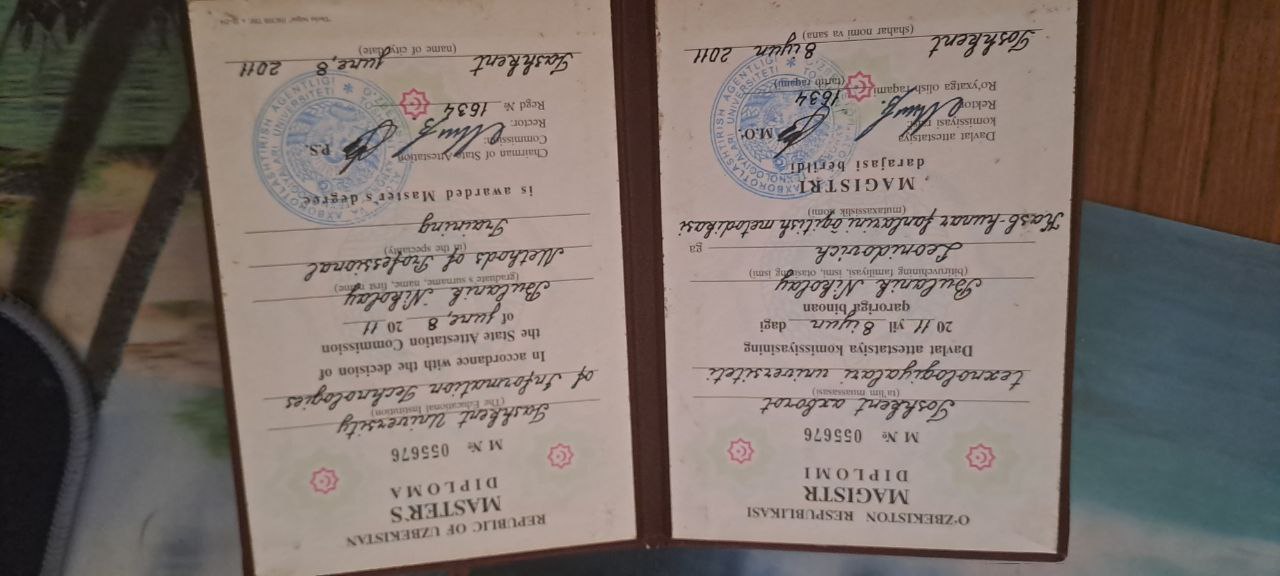 O'ZBEKISTON RESPUBLIKASI
MAGISTR
DIPLOMI
M № 055676
Toshkent axborot
(ta'lim muassasasi)
texnologiyalari universiteti
Davlat attestatsiya komissiyasining
20 11 yil 8 iyun dagi
qaroriga binoan
Bulanik Nikolay
(bitiruvchining familiyasi, ismi, otasining ismi)
Leonidovich ga
Kasb-hunar fanlarini o'qitish metodikasi
(mutaxassislik nomi)
MAGISTRI
darajasi berildi
Davlat attestatsiya
komissiyasi raisi
M.O.
Rektor:
Ro'yxatga olish raqami 1634
(tartib raqami)
Toshkent 8 iyun 2011
(shahar nomi va sana)
REPUBLIC OF UZBEKISTAN
MASTER'S
DIPLOMA
M № 055676
Tashkent University
(The Educational Institution)
of Information Technologies
In accordance with the decision of
the State Attestation Commission
of june, 8 20 11
Bulanik Nikolay
(graduate's surname, name, first name)
Methods of Professional
(in the speciality)
Training
is awarded Master's degree
Chairman of State Attestation
Commission:
P.S.
Rector:
Regd № 1634
Tashkent june, 8 2011
(name of city/date)